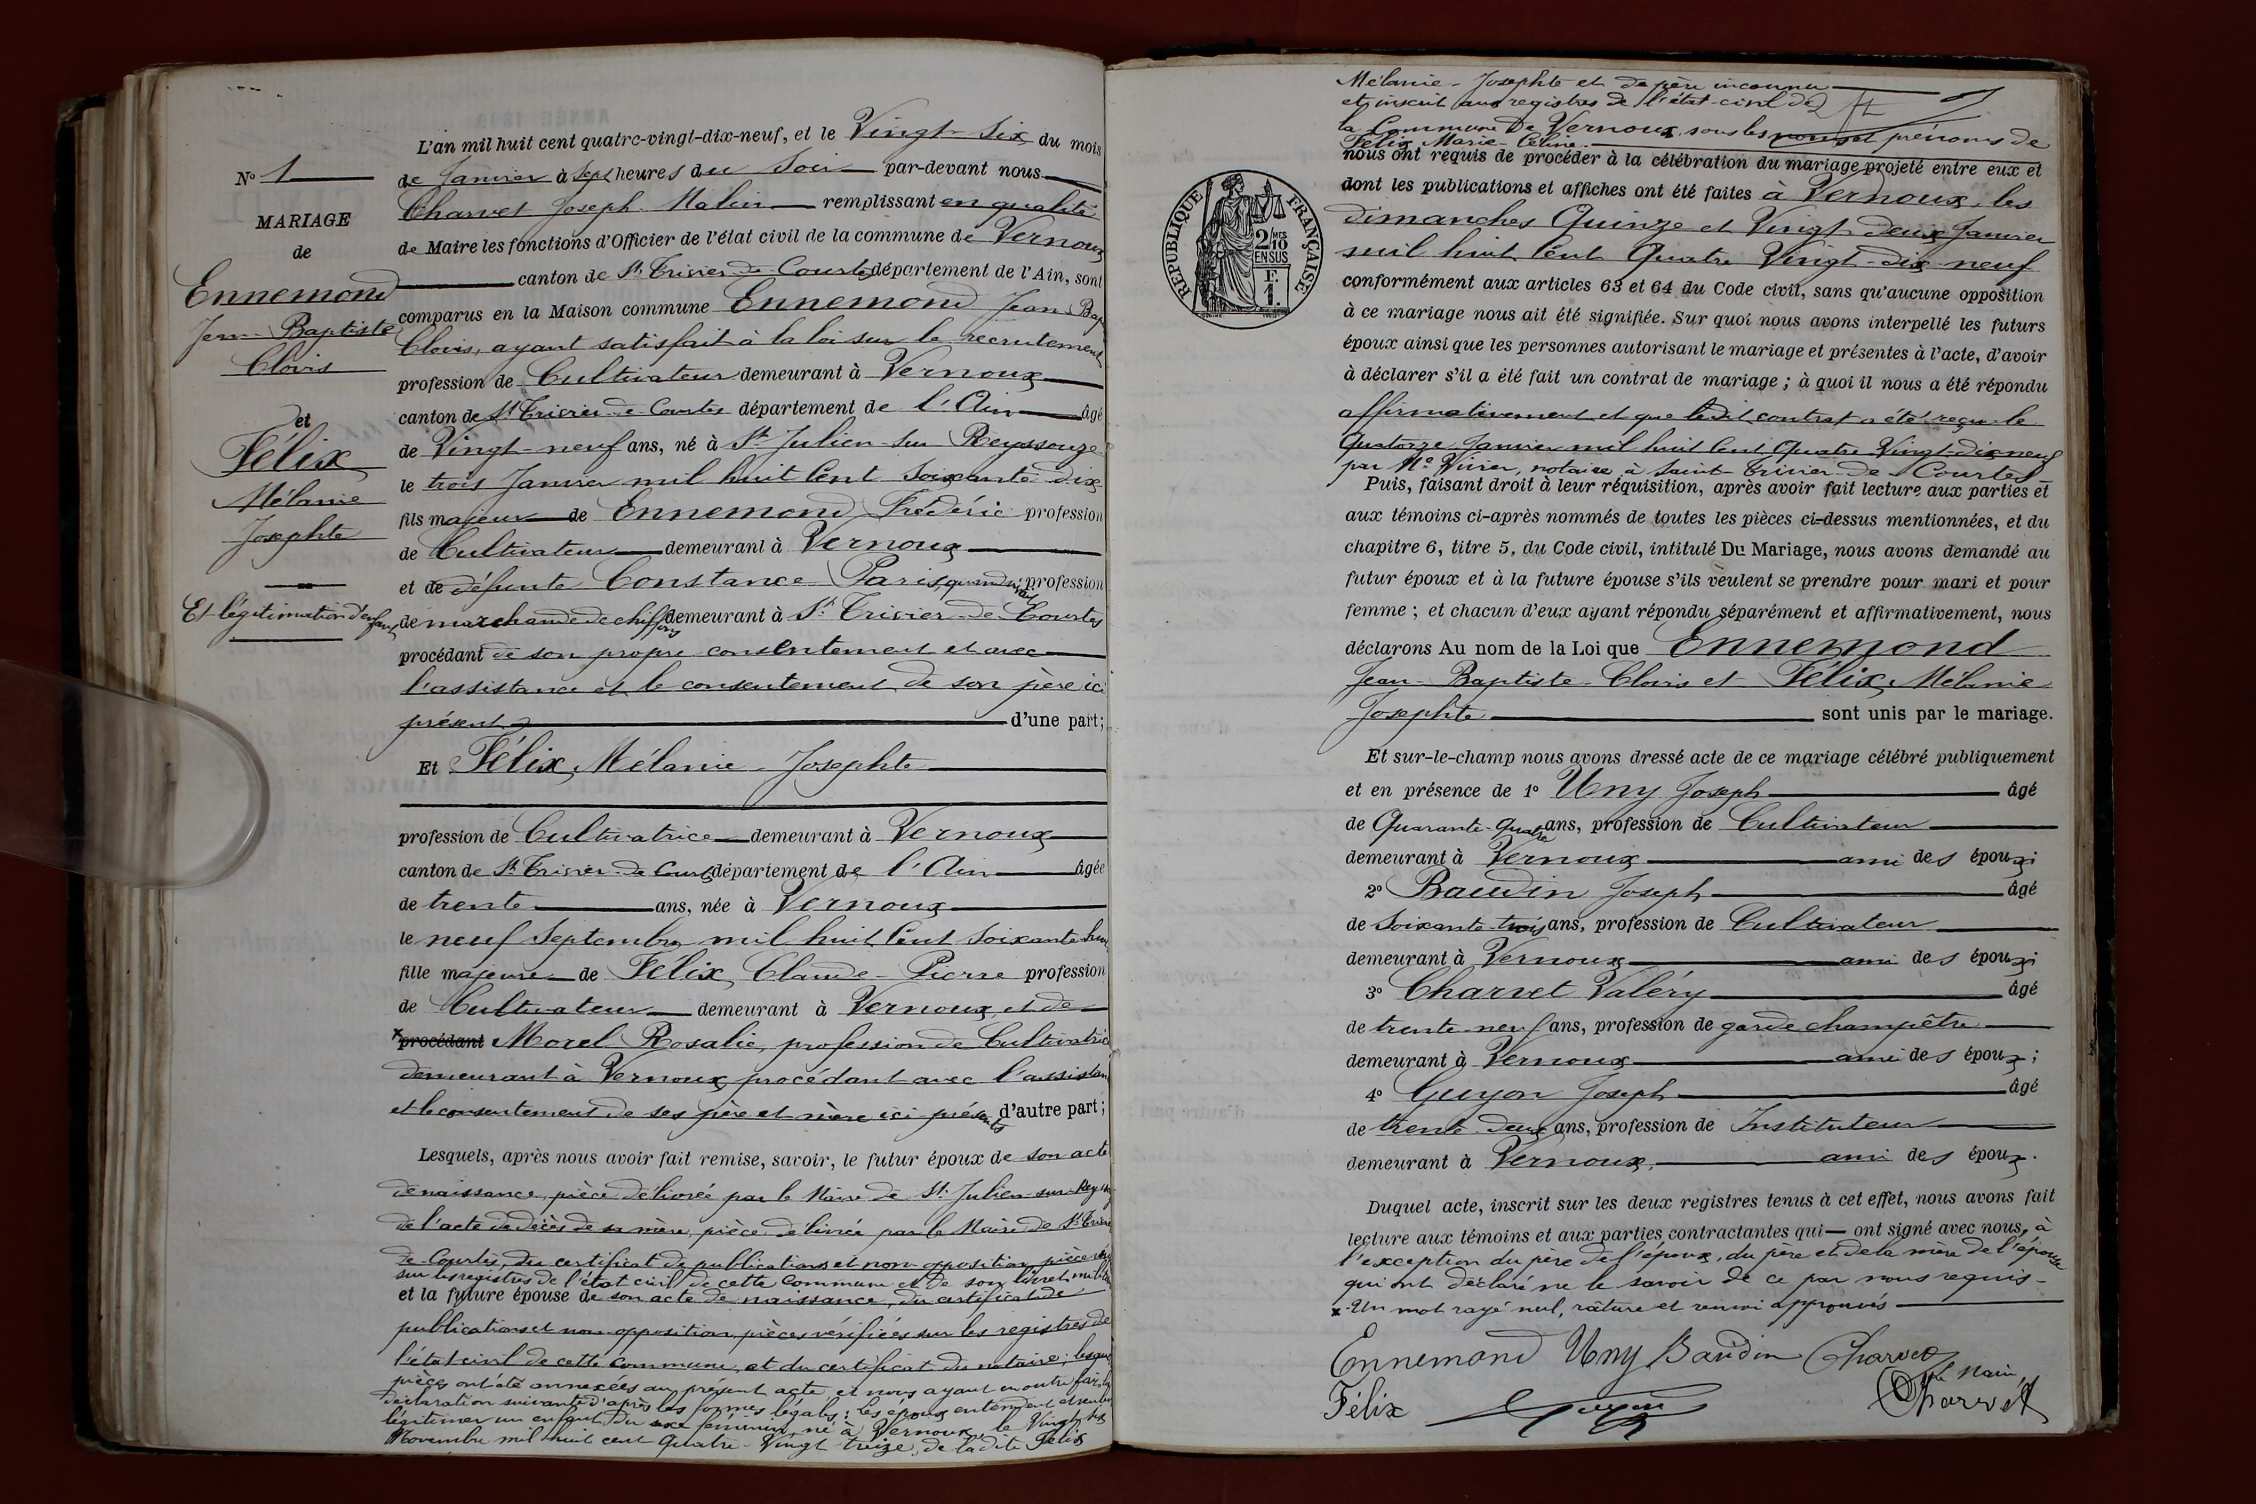 L'an mil huit cent quatre-vingt-dix-neuf, et le Vingt-six du mois
N° 1
de Janvier à sept heures du Soir par-devant nous
Charvet Joseph Malin remplissant en qualité
MARIAGE
de
de Maire les fonctions d'Officier de l'état civil de la commune de Vernoux
canton de St Trivier-de-Courtes département de l'Ain, sont
Ennemond
comparus en la Maison commune Ennemond Jean Bap
Jean-Baptiste
Clovis, ayant satisfait à la loi sur le recrutement
Clovis
profession de Cultivateur demeurant à Vernoux
canton de St Trivier-de-Courtes département de l'Ain âgé
et
de Vingt-neuf ans, né à St Julien-sur-Reyssouze
Félix
le trois Janvier mil huit cent soixante-dix
Mélanie
fils majeur de Ennemond Frédéric profession
Josephte
de Cultivateur demeurant à Vernoux
et de défunte Constance Paris, quand vivait profession
Et légitimation d'enfant
de marchande de chiffons demeurant à St Trivier-de-Courtes
procédant de son propre consentement et avec
l'assistance et le consentement de son père ici
présent d'une part;
Et Félix, Mélanie-Josephte
profession de Cultivatrice demeurant à Vernoux
canton de St Trivier-de-Courtes département de l'Ain âgée
de trente ans, née à Vernoux
le neuf Septembre mil huit cent soixante-huit
fille majeure de Félix Claude-Pierre profession
de Cultivateur demeurant à Vernoux, et de
x procédant Morel Rosalie, profession de Cultivatrice
demeurant à Vernoux, procédant avec l'assistance
et le consentement de ses père et mère ici présents d'autre part;
Lesquels, après nous avoir fait remise, savoir, le futur époux de son acte
de naissance, pièce délivrée par le Maire de St Julien-sur-Reyssouze
de l'acte de décès de sa mère, pièce délivrée par le Maire de St Trivier
de-Courtes, du certificat de publications et non-opposition, pièce
sur les registres de l'état civil de cette Commune et de son livret militaire
et la future épouse de son acte de naissance, du certificat de
publications et non-opposition, pièces vérifiées sur les registres de
l'état civil de cette commune, et du certificat du notaire; lesquelles
pièces ont été annexées au présent acte, et nous ayant en outre fait la
déclaration suivante d'après les formes légales: les époux entendent
légitimer un enfant du sexe féminin, né à Vernoux, le Vingt-six
Novembre mil huit cent Quatre-Vingt-treize, de ladite Félix
Mélanie-Josephte et de père inconnu
et inscrit aux registres de l'état-civil de
la Commune de Vernoux, sous les noms et prénoms de
Félix Marie-Céline.
nous ont requis de procéder à la célébration du mariage projeté entre eux et
dont les publications et affiches ont été faites à Vernoux, les
dimanches Quinze et Vingt-deux Janvier
mil huit Cent Quatre-Vingt-dix-neuf
RÉPUBLIQUE FRANÇAISE
2/10 MES
EN SUS
F.
1.
conformément aux articles 63 et 64 du Code civil, sans qu'aucune opposition
à ce mariage nous ait été signifiée. Sur quoi nous avons interpellé les futurs
époux ainsi que les personnes autorisant le mariage et présentes à l'acte, d'avoir
à déclarer s'il a été fait un contrat de mariage; à quoi il nous a été répondu
affirmativement et que ledit contrat a été reçu le
Quatorze Janvier mil huit cent Quatre-Vingt-dix neuf
par Me Vivier, notaire à Saint-Trivier-de-Courtes
Puis, faisant droit à leur réquisition, après avoir fait lecture aux parties et
aux témoins ci-après nommés de toutes les pièces ci-dessus mentionnées, et du
chapitre 6, titre 5, du Code civil, intitulé Du Mariage, nous avons demandé au
futur époux et à la future épouse s'ils veulent se prendre pour mari et pour
femme; et chacun d'eux ayant répondu séparément et affirmativement, nous
déclarons Au nom de la Loi que Ennemond
Jean-Baptiste-Clovis et Félix, Mélanie
Josephte sont unis par le mariage.
Et sur-le-champ nous avons dressé acte de ce mariage célébré publiquement
et en présence de 1° Uny Joseph âgé
de Quarante-quatre ans, profession de Cultivateur
demeurant à Vernoux ami des époux;
2° Baudin Joseph âgé
de soixante-trois ans, profession de Cultivateur
demeurant à Vernoux ami des époux;
3° Charvet Valéry âgé
de trente-neuf ans, profession de garde champêtre
demeurant à Vernoux ami des époux;
4° Guyon Joseph âgé
de trente-deux ans, profession de Instituteur
demeurant à Vernoux, ami des époux.
Duquel acte, inscrit sur les deux registres tenus à cet effet, nous avons fait
lecture aux témoins et aux parties contractantes qui ont signé avec nous, à
l'exception du père de l'époux, du père et de la mère de l'épouse
qui ont déclaré ne le savoir de ce par nous requis-
x-Un mot rayé nul, rature et renvoi approuvés
Ennemond Uny Baudin Charvet
Le Maire
Félix Guyon Charvet